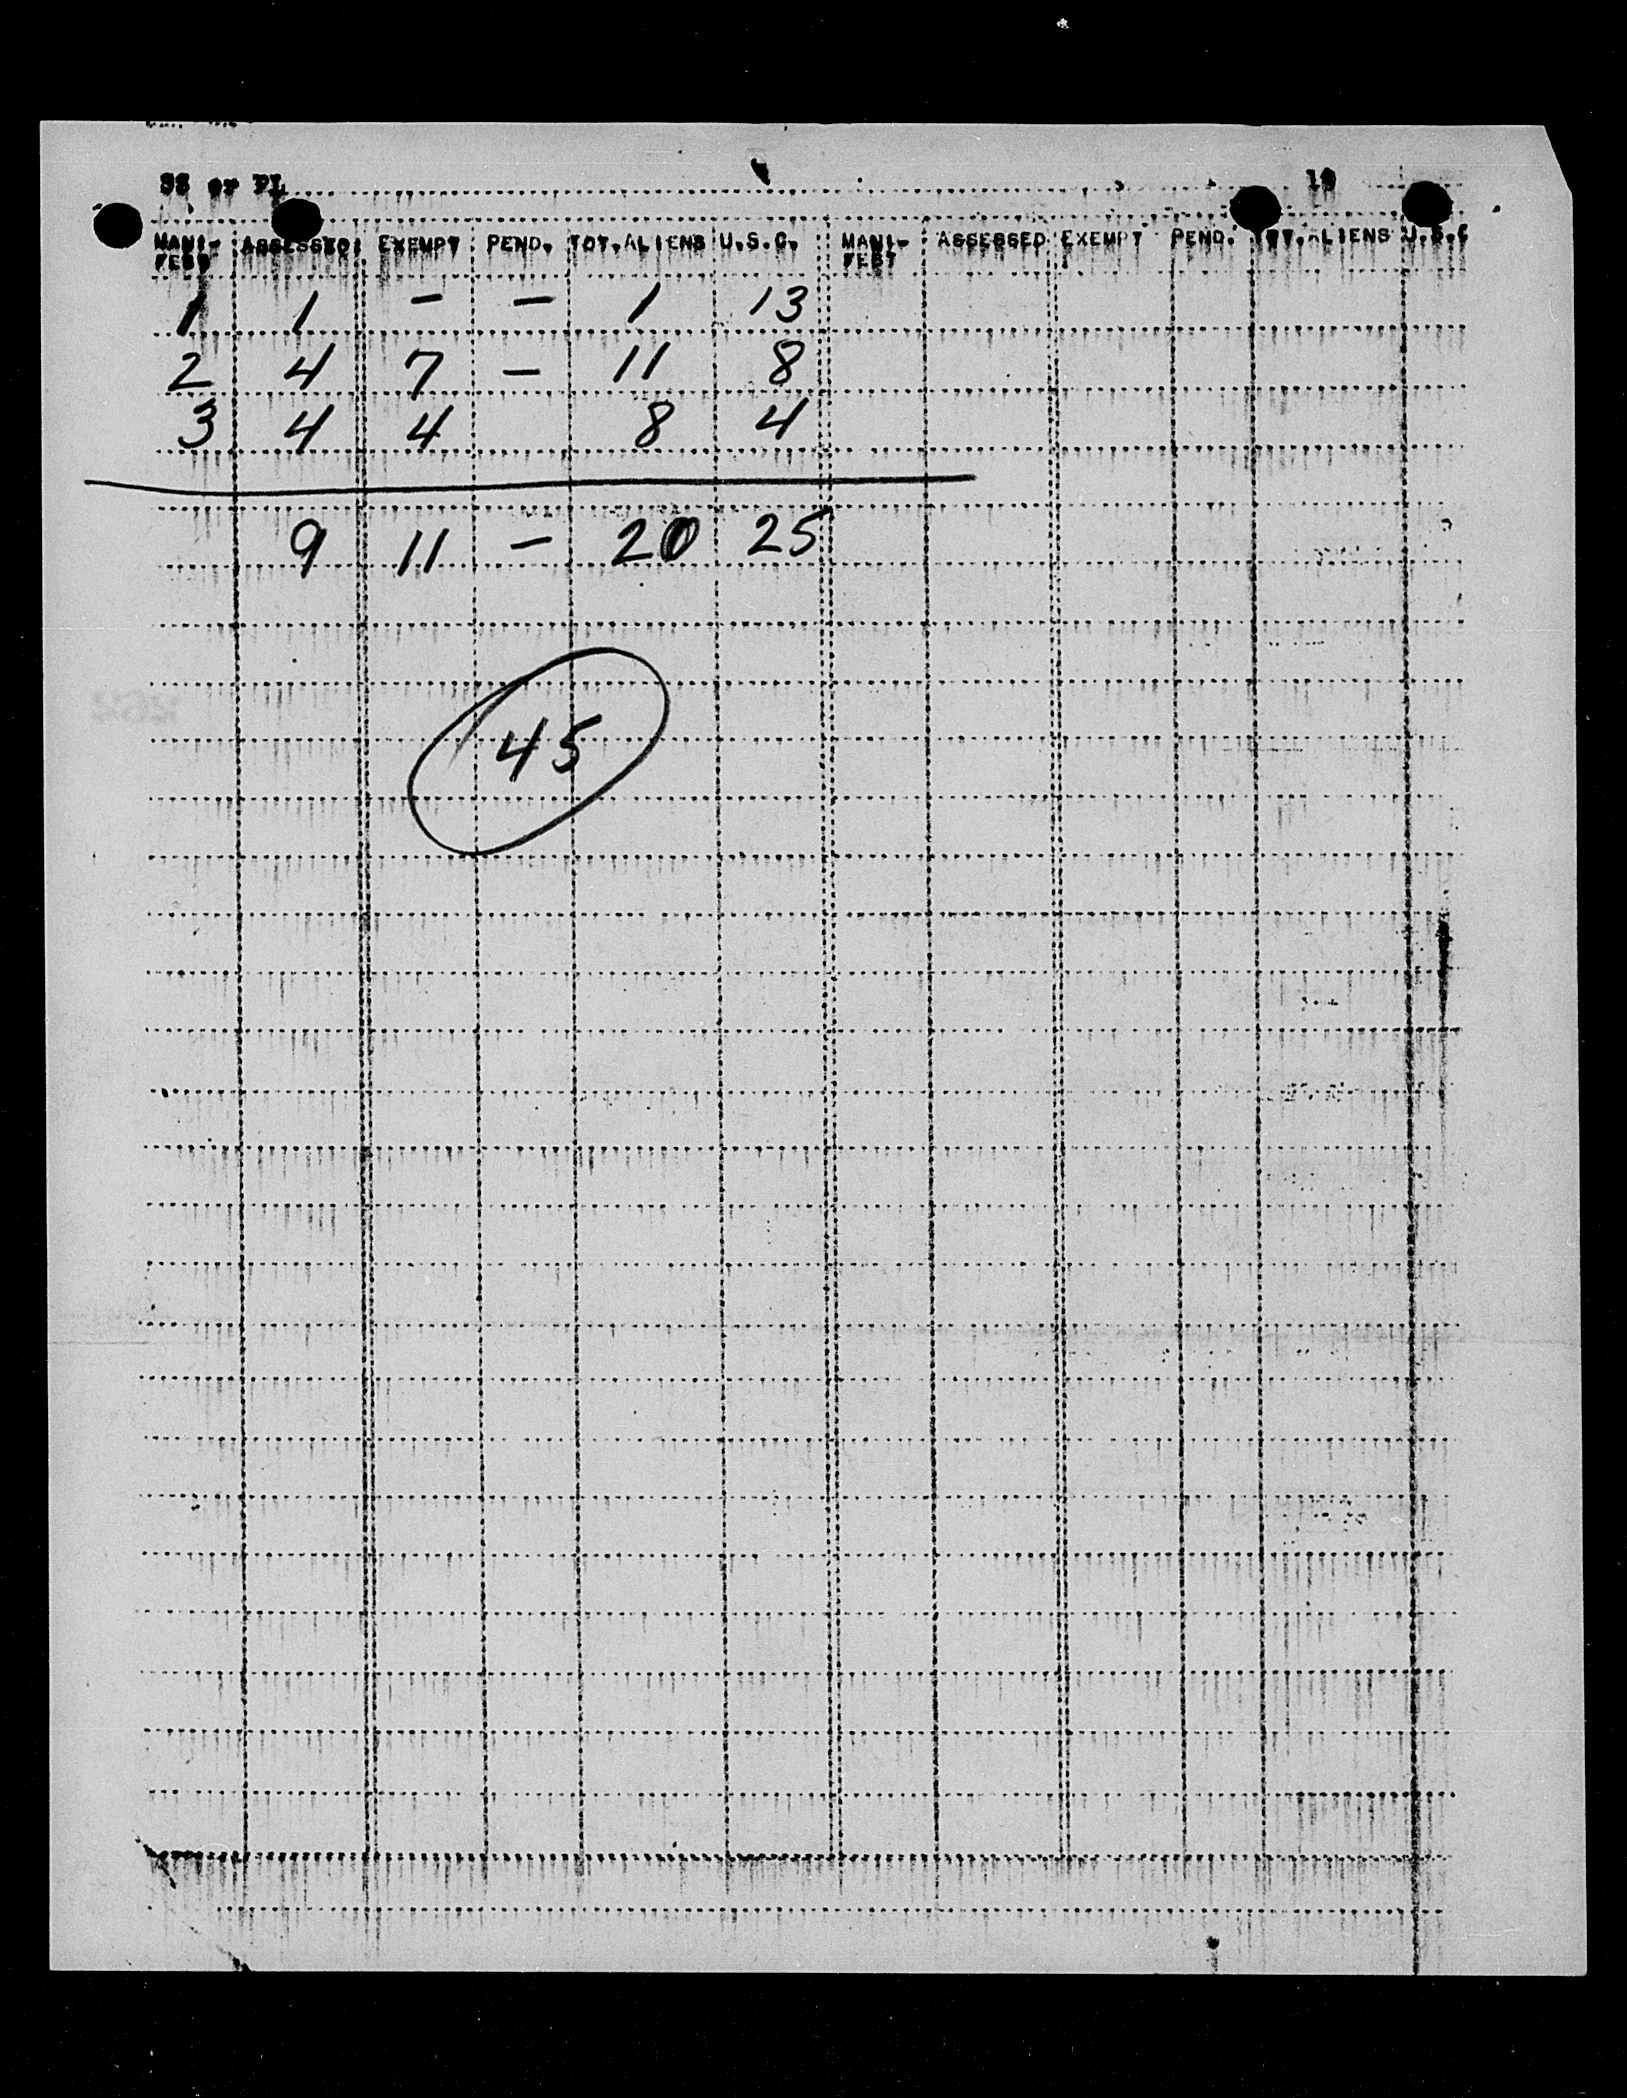 SS or PL 19
MANI- ASSESSED EXEMPT PEND. TOT.ALIENS U.S.C. MANI- ASSESSED EXEMPT PEND. TOT.ALIENS U.S.C
FEST FEST
1 1 - - 1 13
2 4 7 - 11 8
3 4 4 8 4
9 11 - 20 25
45